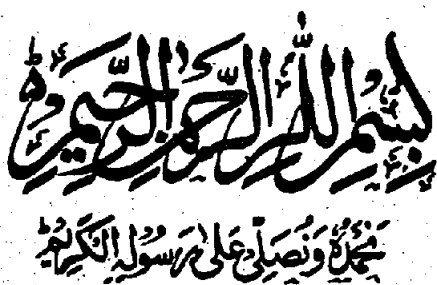 بِسْمِ اللهِ الرَّحْمٰنِ الرَّحِيْمِ
نَحْمَدُهٗ وَنُصَلِّىْ عَلٰى رَسُوْلِهِ الْكَرِيْمِ